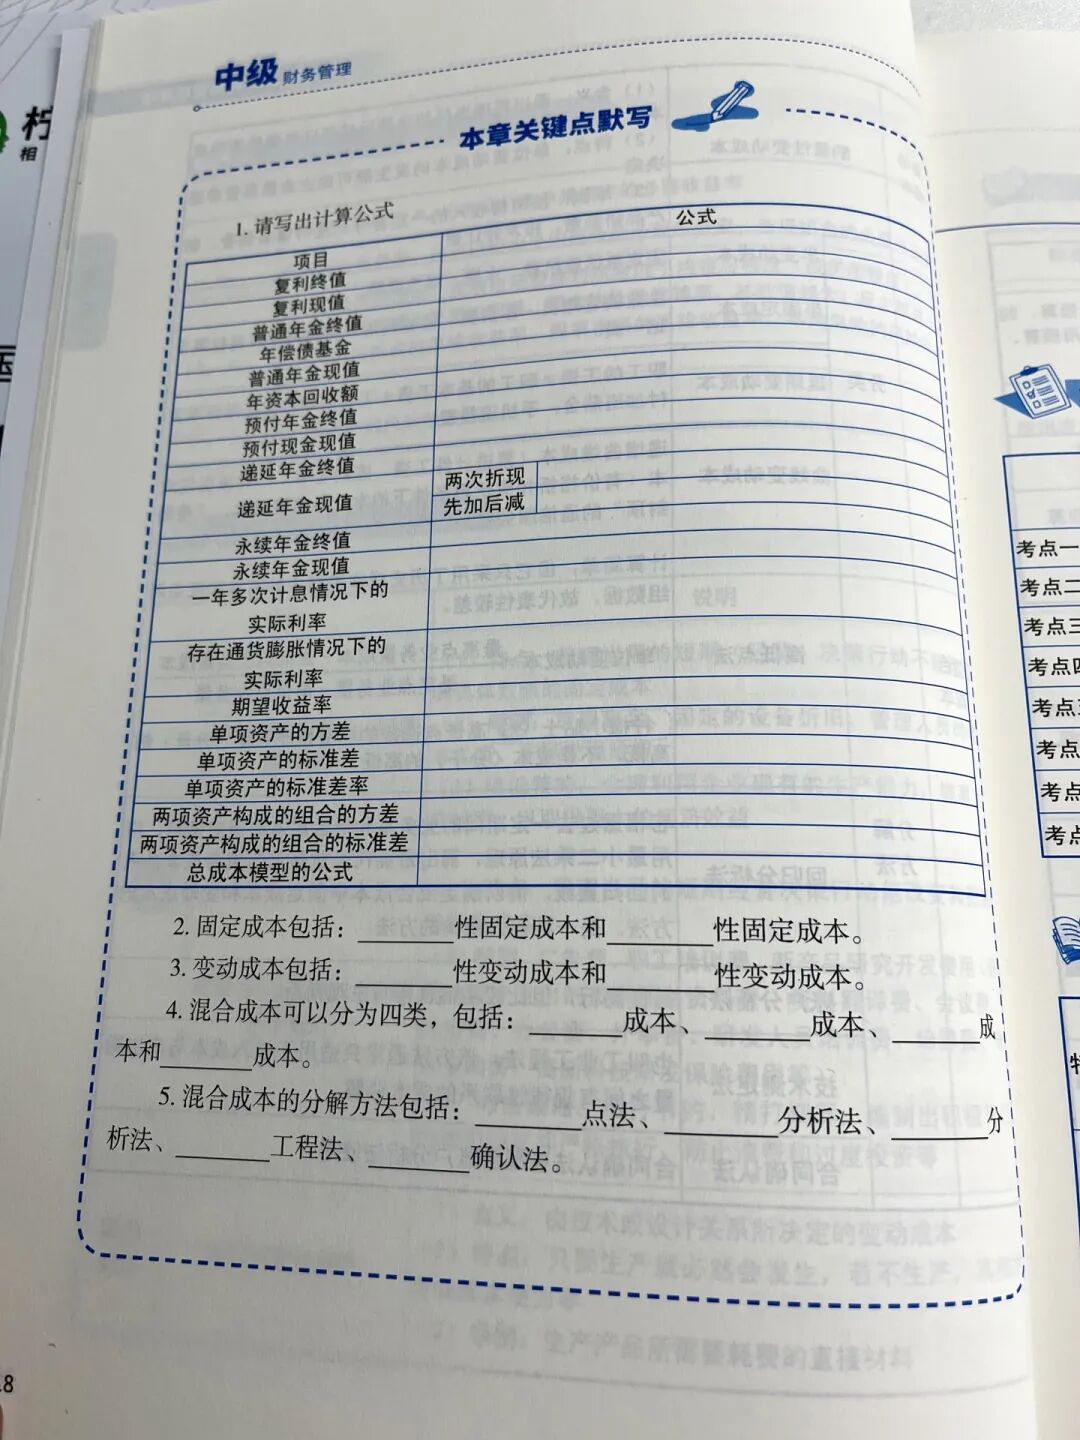 中级 财务管理
本章关键点默写
1. 请写出计算公式
项目 公式
复利终值
复利现值
普通年金终值
年偿债基金
普通年金现值
年资本回收额
预付年金终值
预付现金现值
递延年金终值
递延年金现值 两次折现
先加后减
永续年金终值
永续年金现值
一年多次计息情况下的
实际利率
存在通货膨胀情况下的
实际利率
期望收益率
单项资产的方差
单项资产的标准差
单项资产的标准差率
两项资产构成的组合的方差
两项资产构成的组合的标准差
总成本模型的公式
2. 固定成本包括：________性固定成本和________性固定成本。
3. 变动成本包括：________性变动成本和________性变动成本。
4. 混合成本可以分为四类，包括：________成本、________成本、________成
本和________成本。
5. 混合成本的分解方法包括：________点法、________分析法、________分
析法、________工程法、________确认法。
.8
柠
相
考点一
考点二
考点三
考点四
考点五
考点
考点
考点